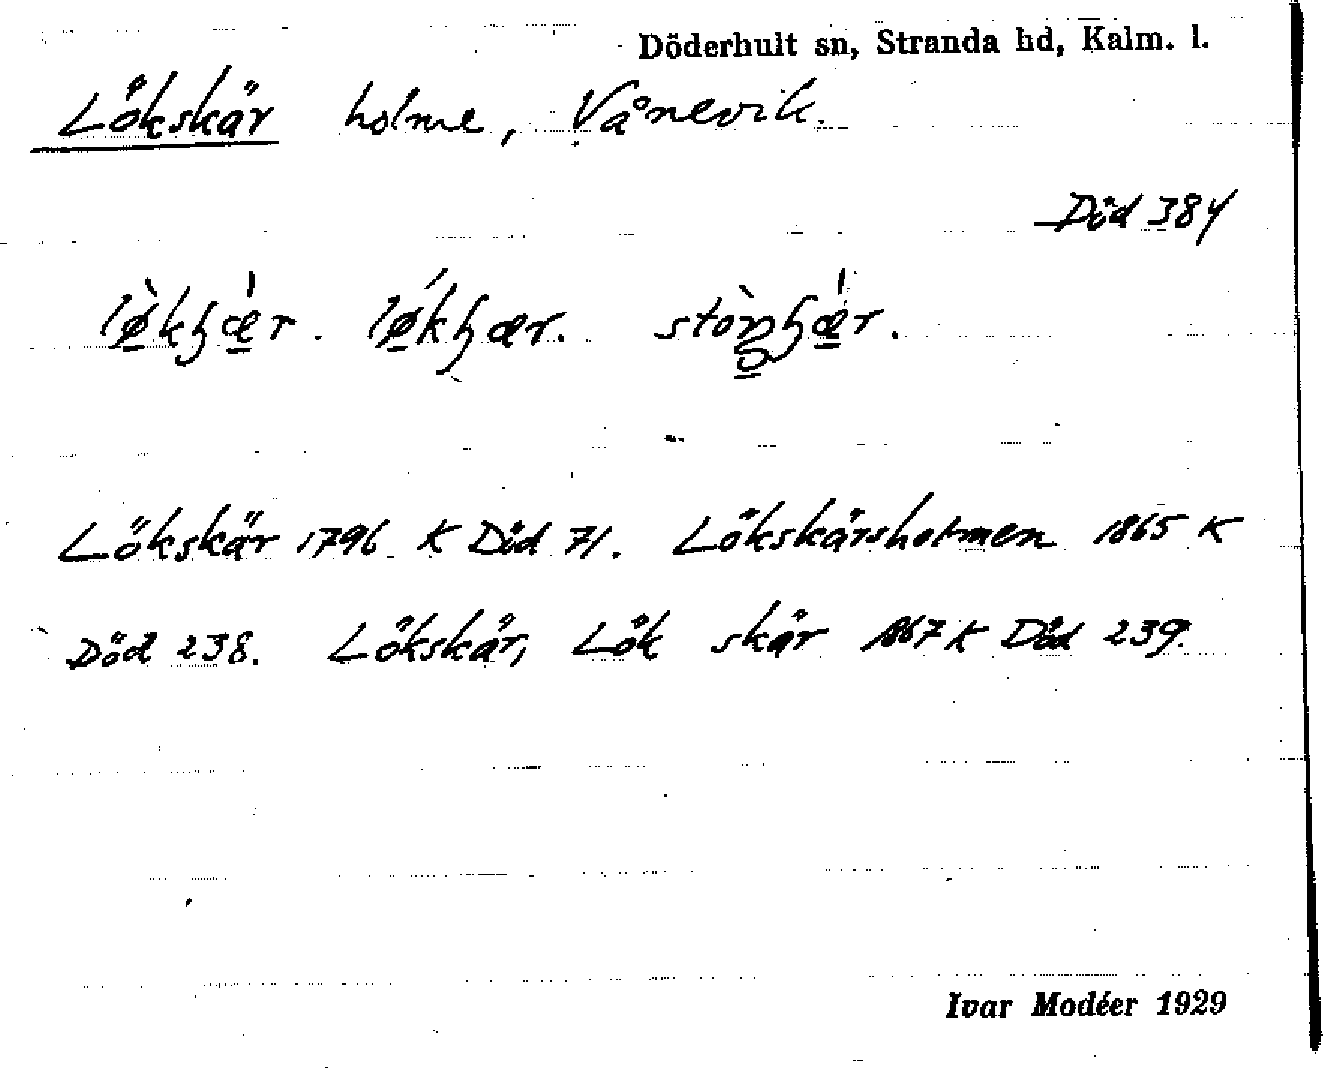 Döderhult sn, Stranda hd, Kalm. l.
Lökskär holme, Vånevik.
Död 384
Lökskär 1796 K Död 71. Lökskärsholmen 1865 K
Död 238. Lökskär, Lök skär 1867 K Död 239.
Ivar Modéer 1929